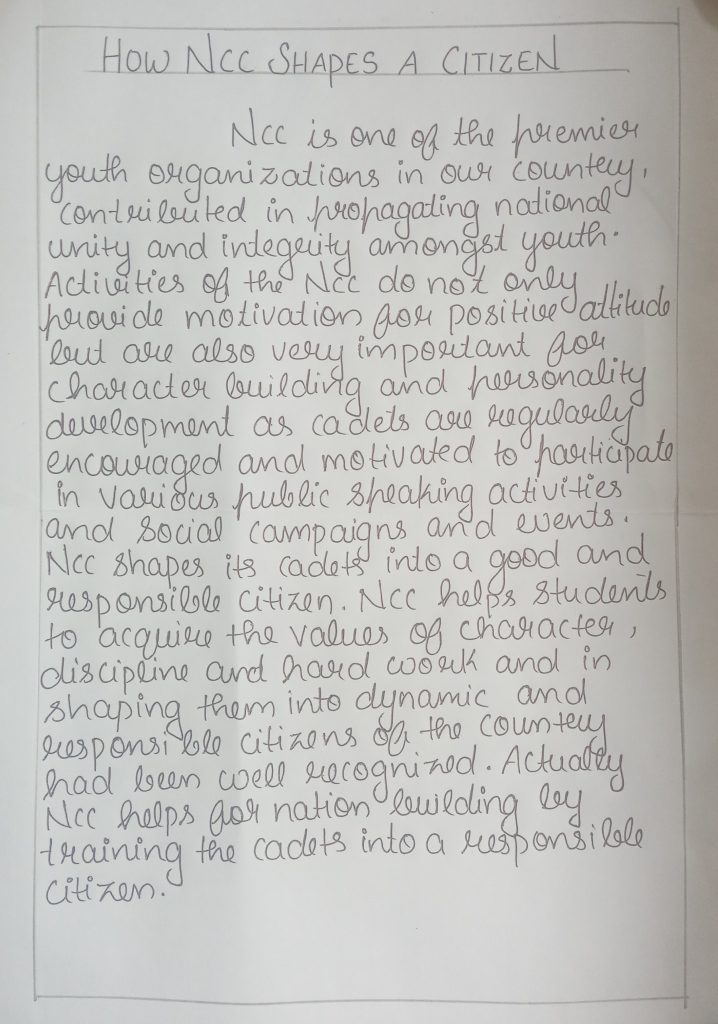 HOW NCC SHAPES A CITIZEN
NCC is one of the premier
youth organizations in our country,
contributed in propagating national
unity and integrity amongst youth.
Activities of the NCC do not only
provide motivation for positive attitude
but are also very important for
character building and personality
development as cadets are regularly
encouraged and motivated to participate
in various public speaking activities
and social campaigns and events.
NCC shapes its cadets into a good and
responsible citizen. NCC helps students
to acquire the values of character,
discipline and hard work and in
shaping them into dynamic and
responsible citizens of the country
had been well recognized. Actually
NCC helps for nation building by
training the cadets into a responsible
citizen.